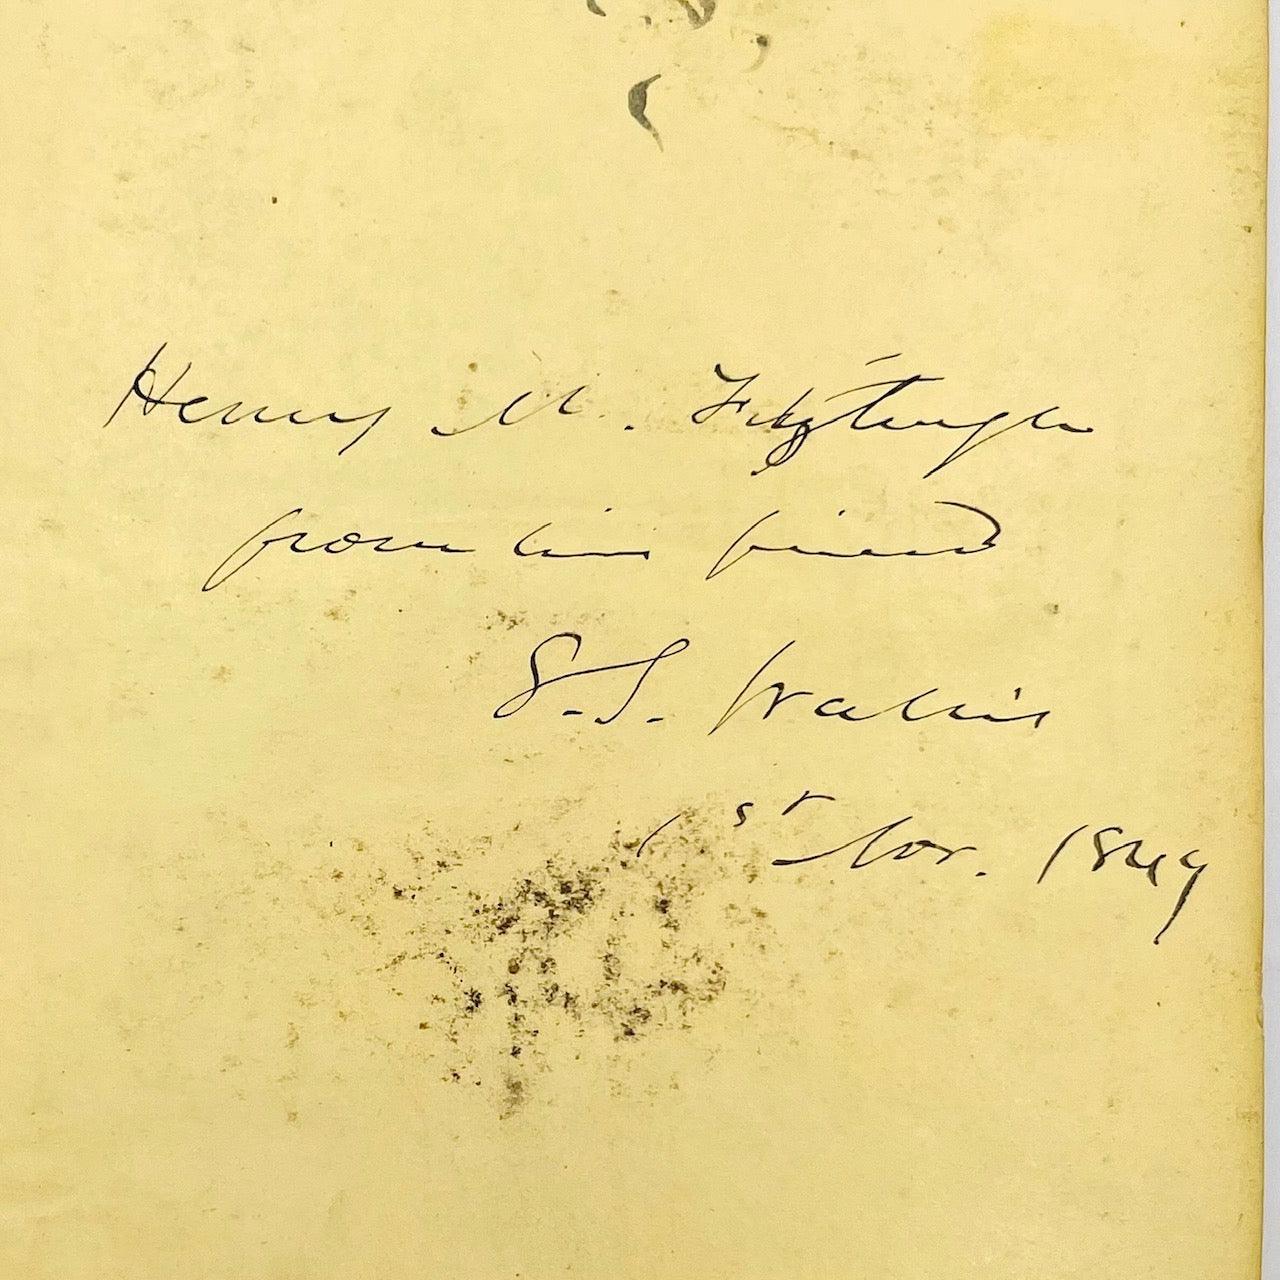 Henry M. Fitzhugh
from his friend
S. T. Wallis
1st Nov. 1849